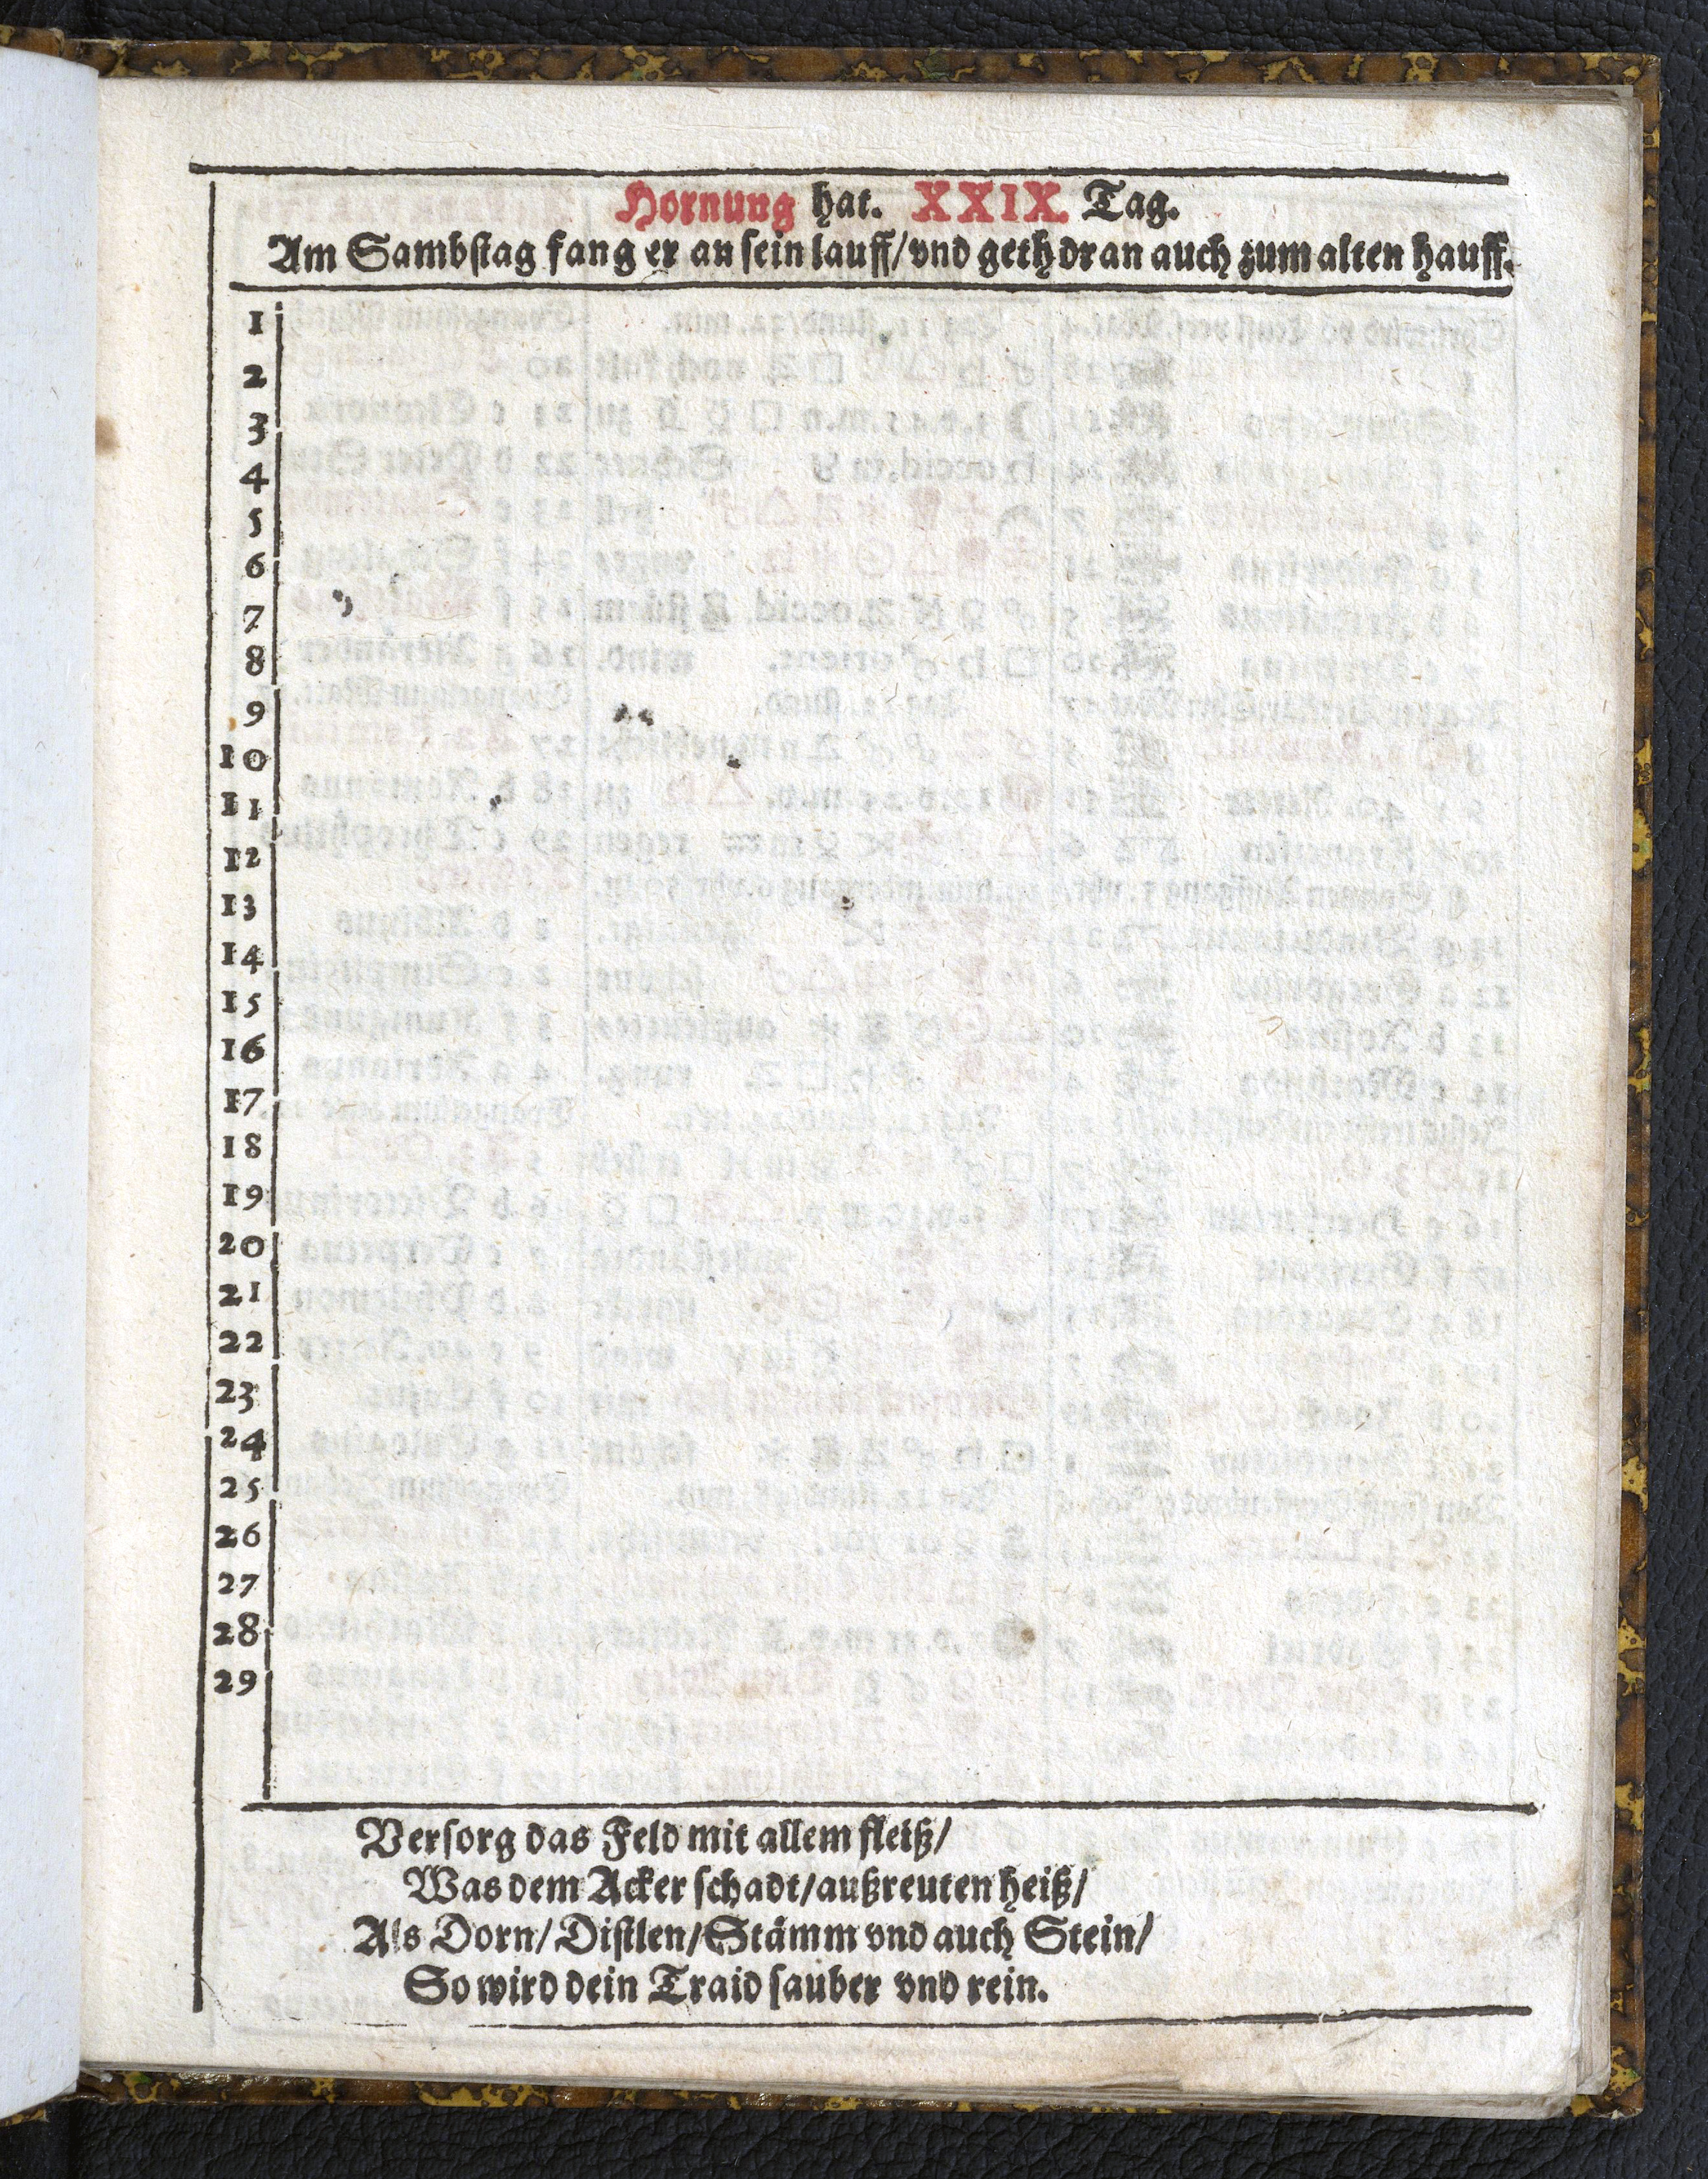 Hornung hat. XXIX. Tag.
Am Sambstag fang er an sein lauff/vnd geth dran auch zum alten hauff.
1
2
3
4
5
6
7
8
9
10
11
12
13
14
15
16
17
18
19
20
21
22
23
24
25
26
27
28
29
Versorg das Feld mit allem fleiß/
Was dem Acker schadt/außreuten heiß/
Als Dorn/Distlen/Stämm vnd auch Stein/
So wird dein Traid sauber vnd rein.